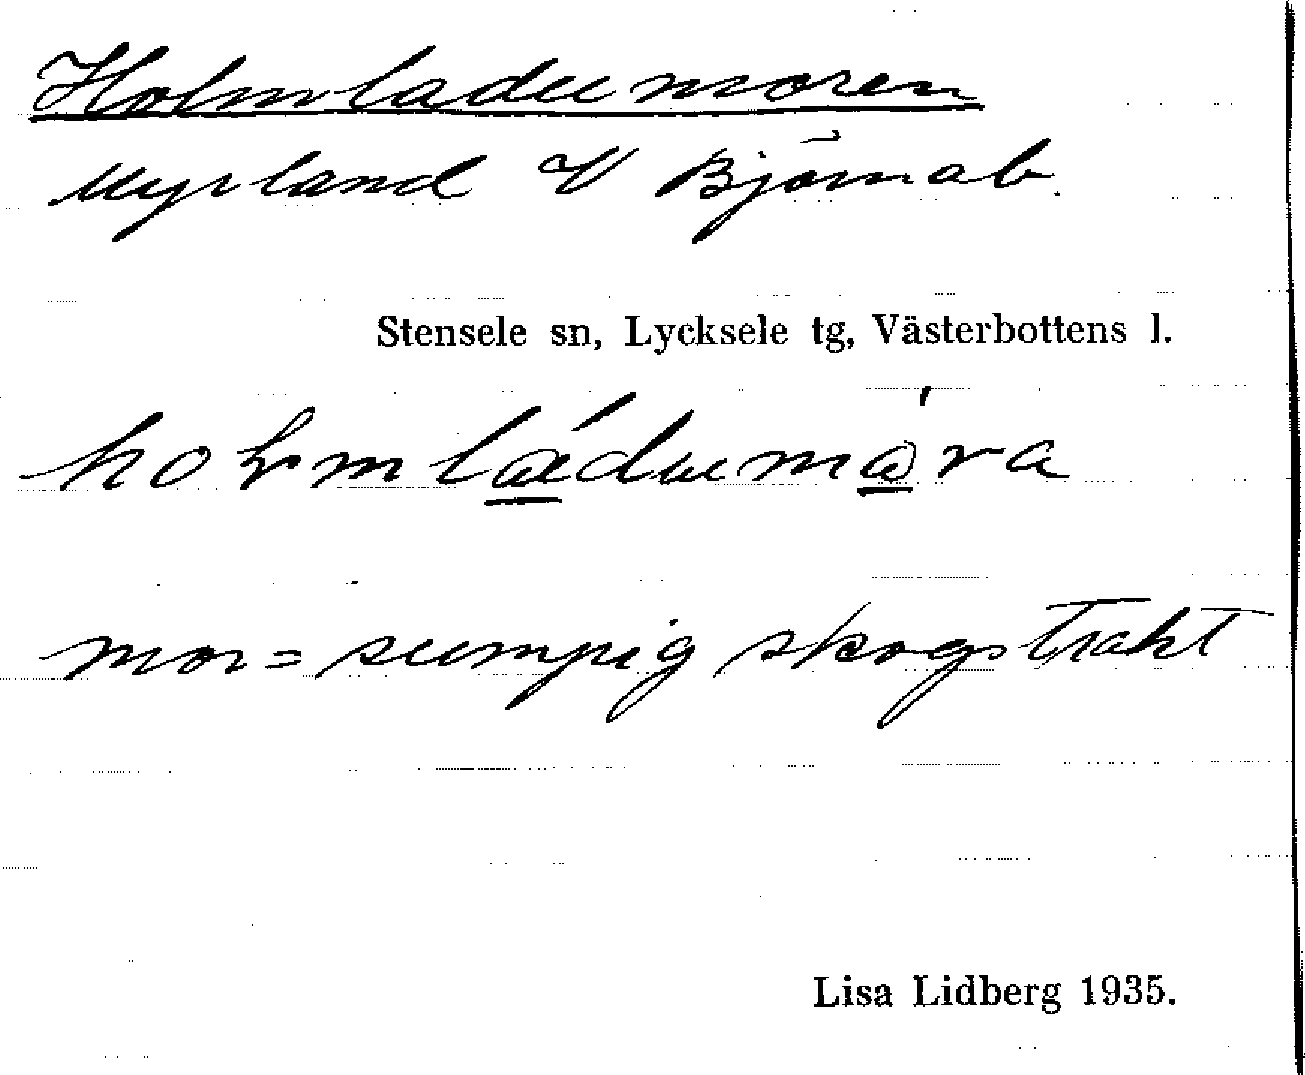 Holmladumoren
Myrland V Björnab.
Stensele sn, Lycksele tg, Västerbottens l.
mor = sumpig skogstrakt
Lisa Lidberg 1935.